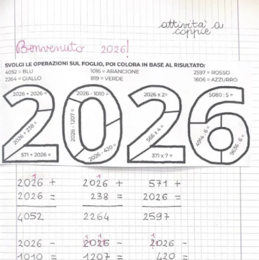 attività a
coppie
Benvenuto 2026!
SVOLGI LE OPERAZIONI SUL FOGLIO, POI COLORA IN BASE AL RISULTATO:
4052 = BLU 1016 = ARANCIONE 2597 = ROSSO
2264 = GIALLO 819 = VERDE 1606 = AZZURRO
2026 + 2026 = 2026 - 1010 = 2026 x 2= 5080 : 5 =
2026 + 238 = 2026 - 1207 =
571 + 2026 = 2026 - 420 = 371 x 7 =
2026 + 2026 + 571 +
2026 = 238 = 2026 =
4052 2264 2597
2026 - 2026 - 2026 -
1010 = 1207 = 420 =